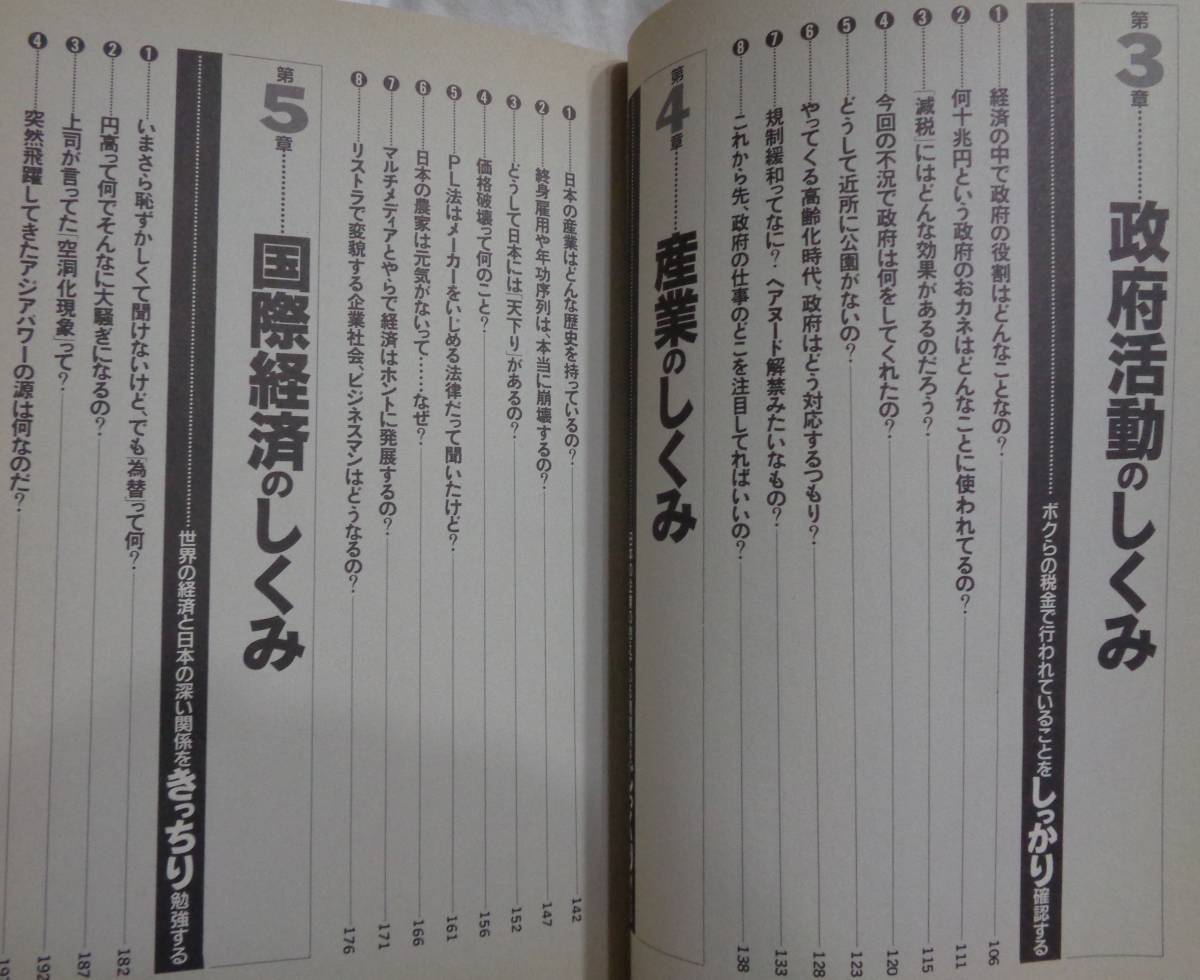 第3章………政府活動のしくみ
ボクらの税金で行われていることをしっかり確認する
❶………経済の中で政府の役割はどんなことなの?………106
❷………何十兆円という政府のおカネはどんなことに使われてるの?………111
❸………「減税」にはどんな効果があるのだろう?………115
❹………今回の不況で政府は何をしてくれたの?………120
❺………どうして近所に公園がないの?………123
❻………やってくる高齢化時代、政府はどう対応するつもり?………128
❼………規制緩和ってなに? ヘアヌード解禁みたいなもの?………133
❽………これから先、政府の仕事のどこを注目してればいいの?………138
第4章………産業のしくみ
❶………日本の産業はどんな歴史を持っているの?………142
❷………終身雇用や年功序列は、本当に崩壊するの?………147
❸………どうして日本には「天下り」があるの?………152
❹………価格破壊って何のこと?………156
❺………PL法はメーカーをいじめる法律だって聞いたけど?………161
❻………日本の農家は元気がないって……なぜ?………166
❼………マルチメディアとやらで経済はホントに発展するの?………171
❽………リストラで変貌する企業社会、ビジネスマンはどうなるの?………176
第5章………国際経済のしくみ
世界の経済と日本の深い関係をきっちり勉強する
❶………いまさら恥ずかしくて聞けないけど、でも「為替」って何?………182
❷………円高って何でそんなに大騒ぎになるの?………187
❸………上司が言った「空洞化現象」って?………192
❹………突然飛躍してきたアジアパワーの源は何なのだ?